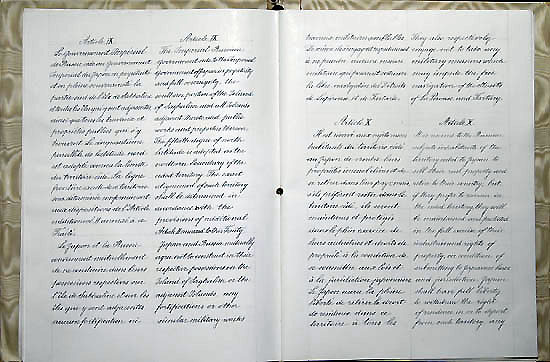 Article IX
Le Gouvernement Impérial
de Russie cède au Gouvernement
Impérial du Japon en perpétuité
et en pleine souveraineté la
partie sud de l'île de Sakhaline
et toutes les îles qui y sont adjacentes
ainsi que tous les travaux et
propriétés publics qui s'y
trouvent. Le cinquantième
parallèle de latitude nord
est adopté comme la limite
du territoire cédé. La ligne
frontière exacte de ce territoire
sera déterminée conformément
aux dispositions de l'Article
additionnel II annexé à ce
Traité.
Le Japon et la Russie
conviennent mutuellement
de ne construire dans leurs
possessions respectives sur
l'île de Sakhaline et sur les
îles qui y sont adjacentes
aucune fortification ni
Article IX
The Imperial Russian
Government cede to the Imperial
Government of Japan in perpetuity
and full sovereignty, the
southern portion of the Island
of Saghalien and all Islands
adjacent thereto and public
works and properties thereon.
The fiftieth degree of north
latitude is adopted as the
northern boundary of the
ceded territory. The exact
alignment of such territory
shall be determined in
accordance with the
provisions of additional
Article II annexed to this Treaty.
Japan and Russia mutually
agree not to construct in their
respective possessions on the
Island of Saghalien or the
adjacent Islands, any
fortifications or other
similar military works
travaux militaires semblables.
de ne prendre aucune mesure
militaire qui pourrait entraver
la libre navigation des Détroits
de La Pérouse et de Tartarie.
Article X
Il est réservé aux sujets russes
habitants du territoire cédé
au Japon de vendre leurs
propriétés immobilières et de
se retirer dans leur pays; mais
s'ils préfèrent rester dans le
territoire cédé, ils seront
maintenus et protégés
dans le plein exercice de
leurs industries et droits de
propriété à la condition de
se soumettre aux lois et
à la juridiction japonaises.
Le Japon aura la pleine
liberté de retirer le droit
de résidence dans ce
territoire à tous les
They also respectively
engage not to take any
military measures which
may impede the free
navigation of the Straits
of La Perouse and Tartary.
Article X
It is reserved to the Russian
subjects inhabitants of the
territory ceded to Japan to
sell their real property and
retire to their country; but
if they prefer to remain in
the ceded territory they will
be maintained and protected
in the full exercise of their
industries and rights of
property, on condition of
submitting to Japanese laws
and jurisdiction. Japan
shall have full liberty
to withdraw the right
of residence in or to deport
from such territory, any